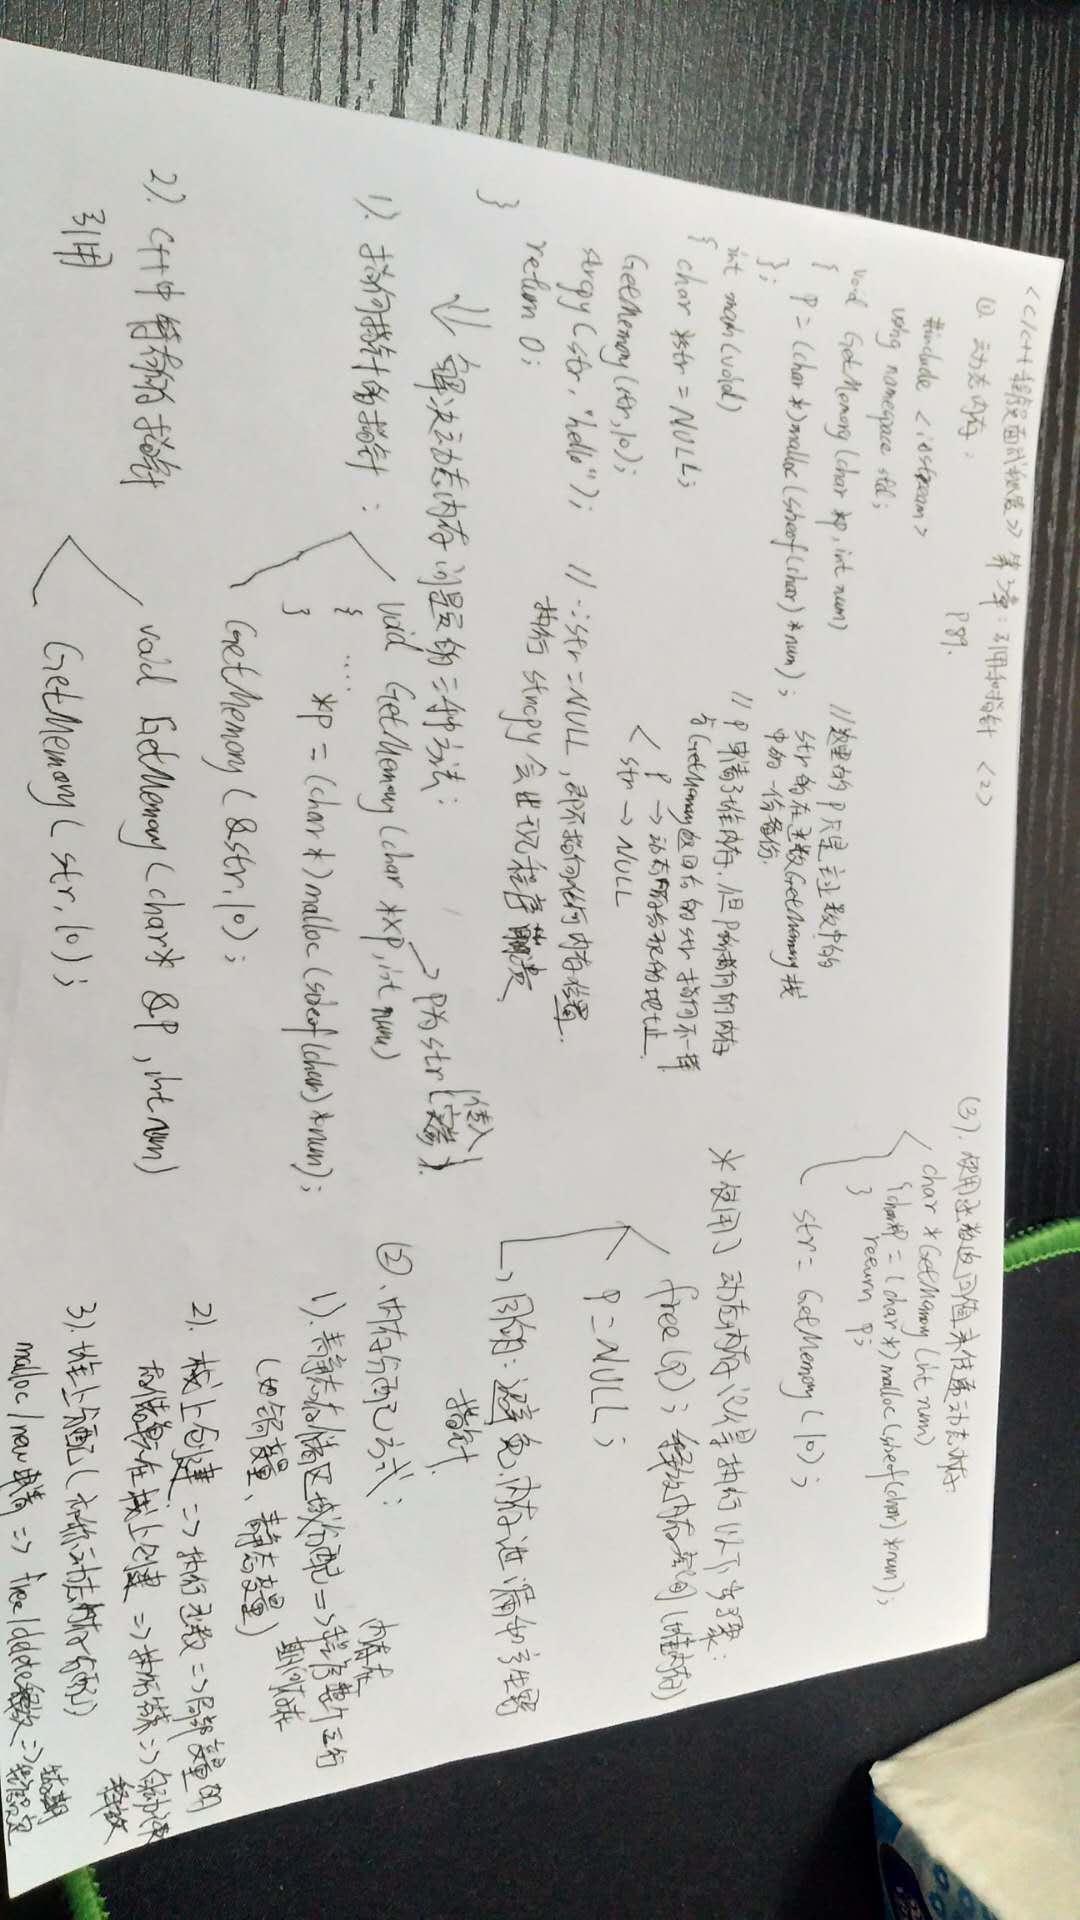 <C/C++程序员面试秘笈>> 第3章：引用和指针 <2>
①. 动态内存：
P89.
#include <iostream>
using namespace std;
void GetMemory(char *p, int num)
{
p = (char*)malloc(sizeof(char)*num);
};
int main(void)
{
char *str = NULL;
GetMemory(str,10);
strcpy(str, "hello");
return 0;
}
//这里的p只是主函数中的
str的在函数GetMemory栈
中的一份备份.
// p申请了堆内存,但p所指向的内存
与GetMemory返回后的str指向不一样
p → 动态内存分配的地址.
str → NULL
// ∵str=NULL, 即不指向任何内存位置.
执行strcpy会出现程序崩溃
⇓ 解决动态内存问题的三种方法：
1). 指向指针的指针：
void GetMemory(char **p, int num)
→ p为str(传入实参).
{ ....
*p = (char*)malloc(sizeof(char)*num);
}
GetMemory(&str,10);
2). C++中特有的指针
引用
void GetMemory(char* &p, int num)
GetMemory(str,10);
(3). 使用函数返回值来传递动态内存.
char *GetMemory(int num)
{char*p = (char*)malloc(sizeof(char)*num);
return p;
}
str = GetMemory(10);
*使用了动态内存记得执行以下步骤：
free(p); 释放内存空间(堆内存)
p=NULL;
→目的：避免内存泄漏和产生野
指针.
②. 内存分配方式：
1). 静态存储区域分配 => 内存在
程序整个运行
期间存在
(如全局变量、静态变量)
2). 栈上创建 => 执行函数 => 局部变量的
存储单元在栈上创建 => 执行结束 => 自动被
释放
3). 堆上分配(亦称动态内存分配)
malloc/new申请 => free/delete释放 => 生存期